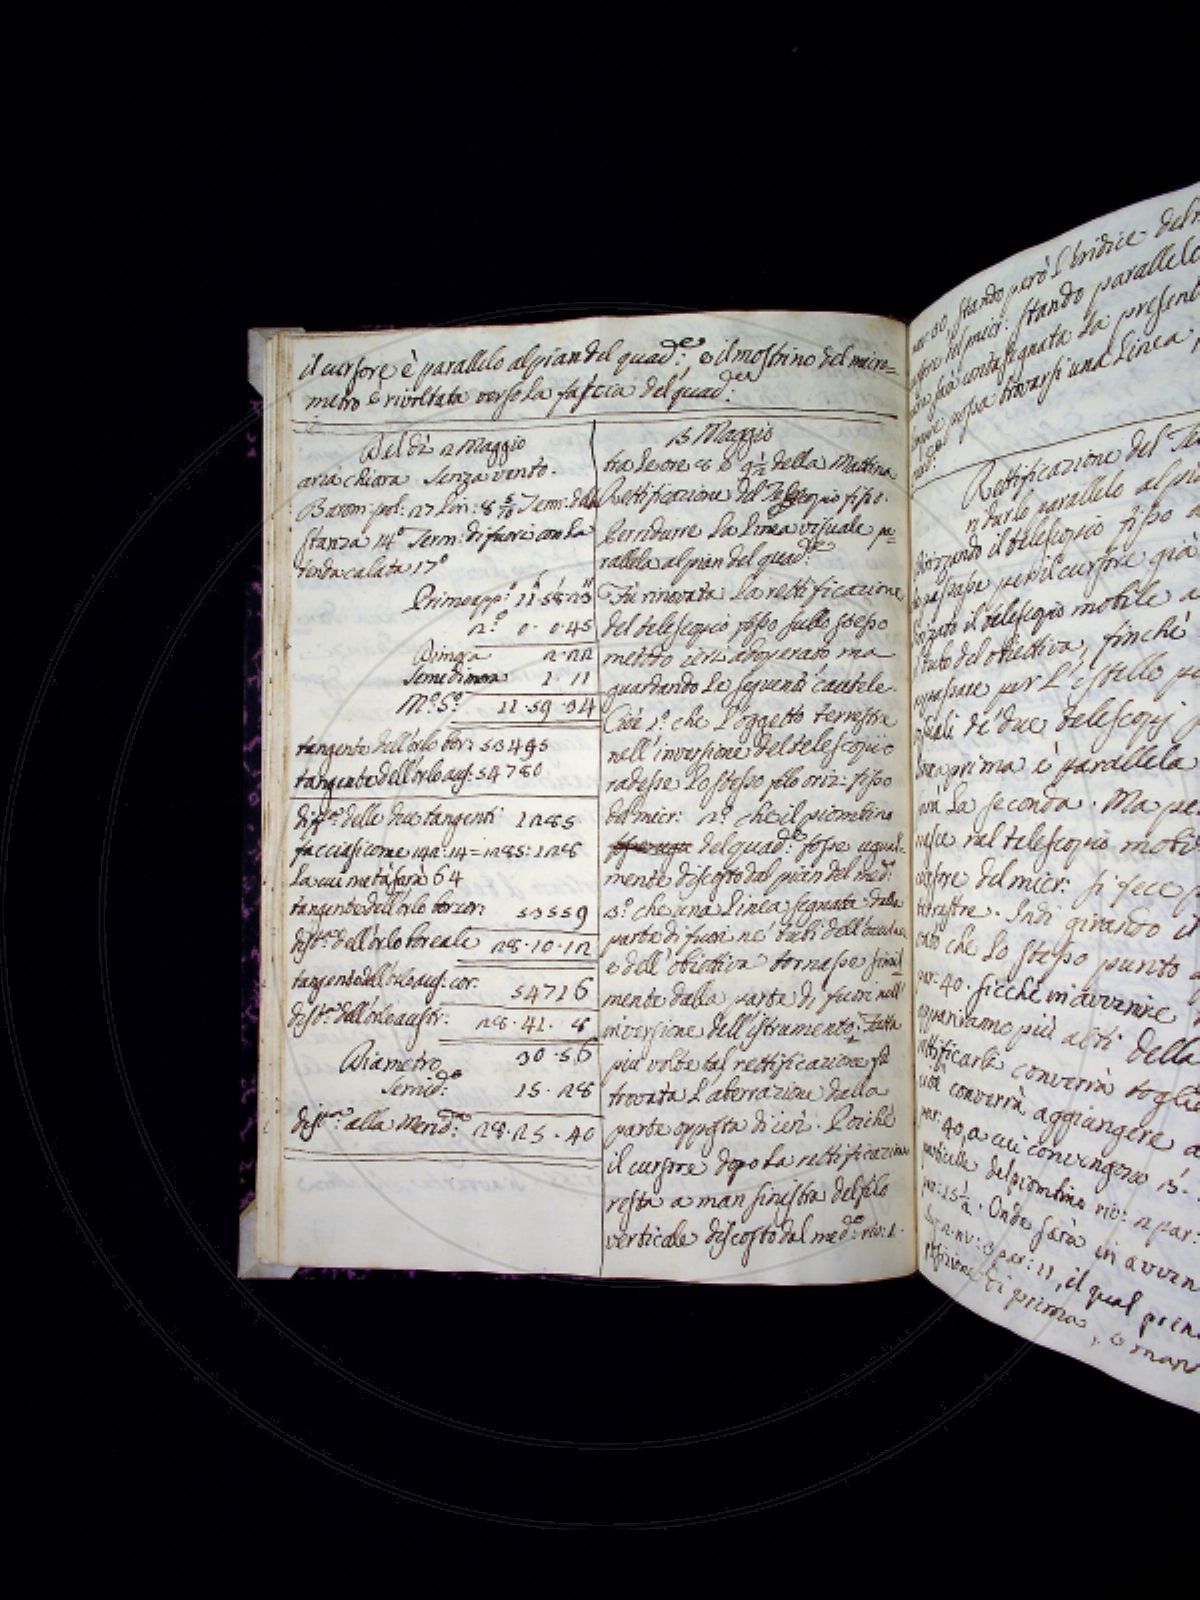 il cursore è parallelo al pian del quad:e e il mostrino del micro=
metro è rivoltata verso la fascia del quad:e
Del dì 2 Maggio
aria chiara senza vento.
Barom: pol: 27 lin: 8 5/10 Term: della
stanza 14° Term: di fuori con la
tenda calata 17°
Primo app:° 11 58 23
2.° 0 0 45
Dimora 2 22
Semidimora 1 11
M.° S.° 11 59 34
tangente dell'orlo bor: 53495
tangente dell'orlo aus: 54780
diff:a delle due tangenti 1285
facciasi come 142:14=1285:128
la cui metà sarà 64
tangente dell'orlo bor cor: 53559
dist:a dell'orlo boreale 28 · 10 · 12
tangente dell'orlo aus: cor: 54716
dist:a dell'orlo austr: 28 · 41 · 8
Diametro 30 · 56
Semid:o 15 · 28
dist:a alla Merid:a 28 · 25 · 40
3 Maggio
tra le ore 8 e 9 1/2 della Mattina
Rettificazione del Telescopio fisso.
Per ridurre la linea visuale pa=
rallela al pian del quad:e
Fu rinovata la rettificazione
del telescopio fisso sullo stesso
metodo ieri adoperato ma
guardando le seguenti cautele
Cioè 1.° che l'oggetto terrestre
nell'inversione del telescopio
radesse lo stesso filo oriz: fisso
del micr: 2.° che il piombino
del quad:e fosse ugual=
mente discosto dal pian del med:o
3.° che una linea segnata dalla
parte di fuori ne' tubi dell'oculare
e dell'obiettiva tornasse simil=
mente dalla parte di fuori nell'
inversione dell'istrumento. Fatta
più volte tal rettificazione fu
trovata l'aberrazione dalla
parte opposta di ieri. Poichè
il cursore dopo la rettificazione
resta a man sinistra del filo
verticale discosto dal med:o riv: 1.
30, stando però l'indice del
micr: stando parallelo
già contrasegnata la present
possa trovarsi una linea,
Rettificazione del Te
ridurlo parallelo al pia
il telescopio fisso
passasse per il cursore già
il telescopio mobile a
dell'obiettiva, finchè
passare per l'istesso pu
de' due telescopj
prima è parallela
la seconda. Ma pe
nel telescopio mobi
del micr: si fece
terrestre. Indi girando il
che lo stesso punto
par: 40. sicchè in avvenire
appariranno più alti della
rettificarle converrà toglie
converrà aggiungere a
par: 40, a cui convengono 13
particelle del piombino riv: 2 par:
par: 15 1/2. Onde sarà in avven
riv: 3 par: 11, il qual
di prima, e